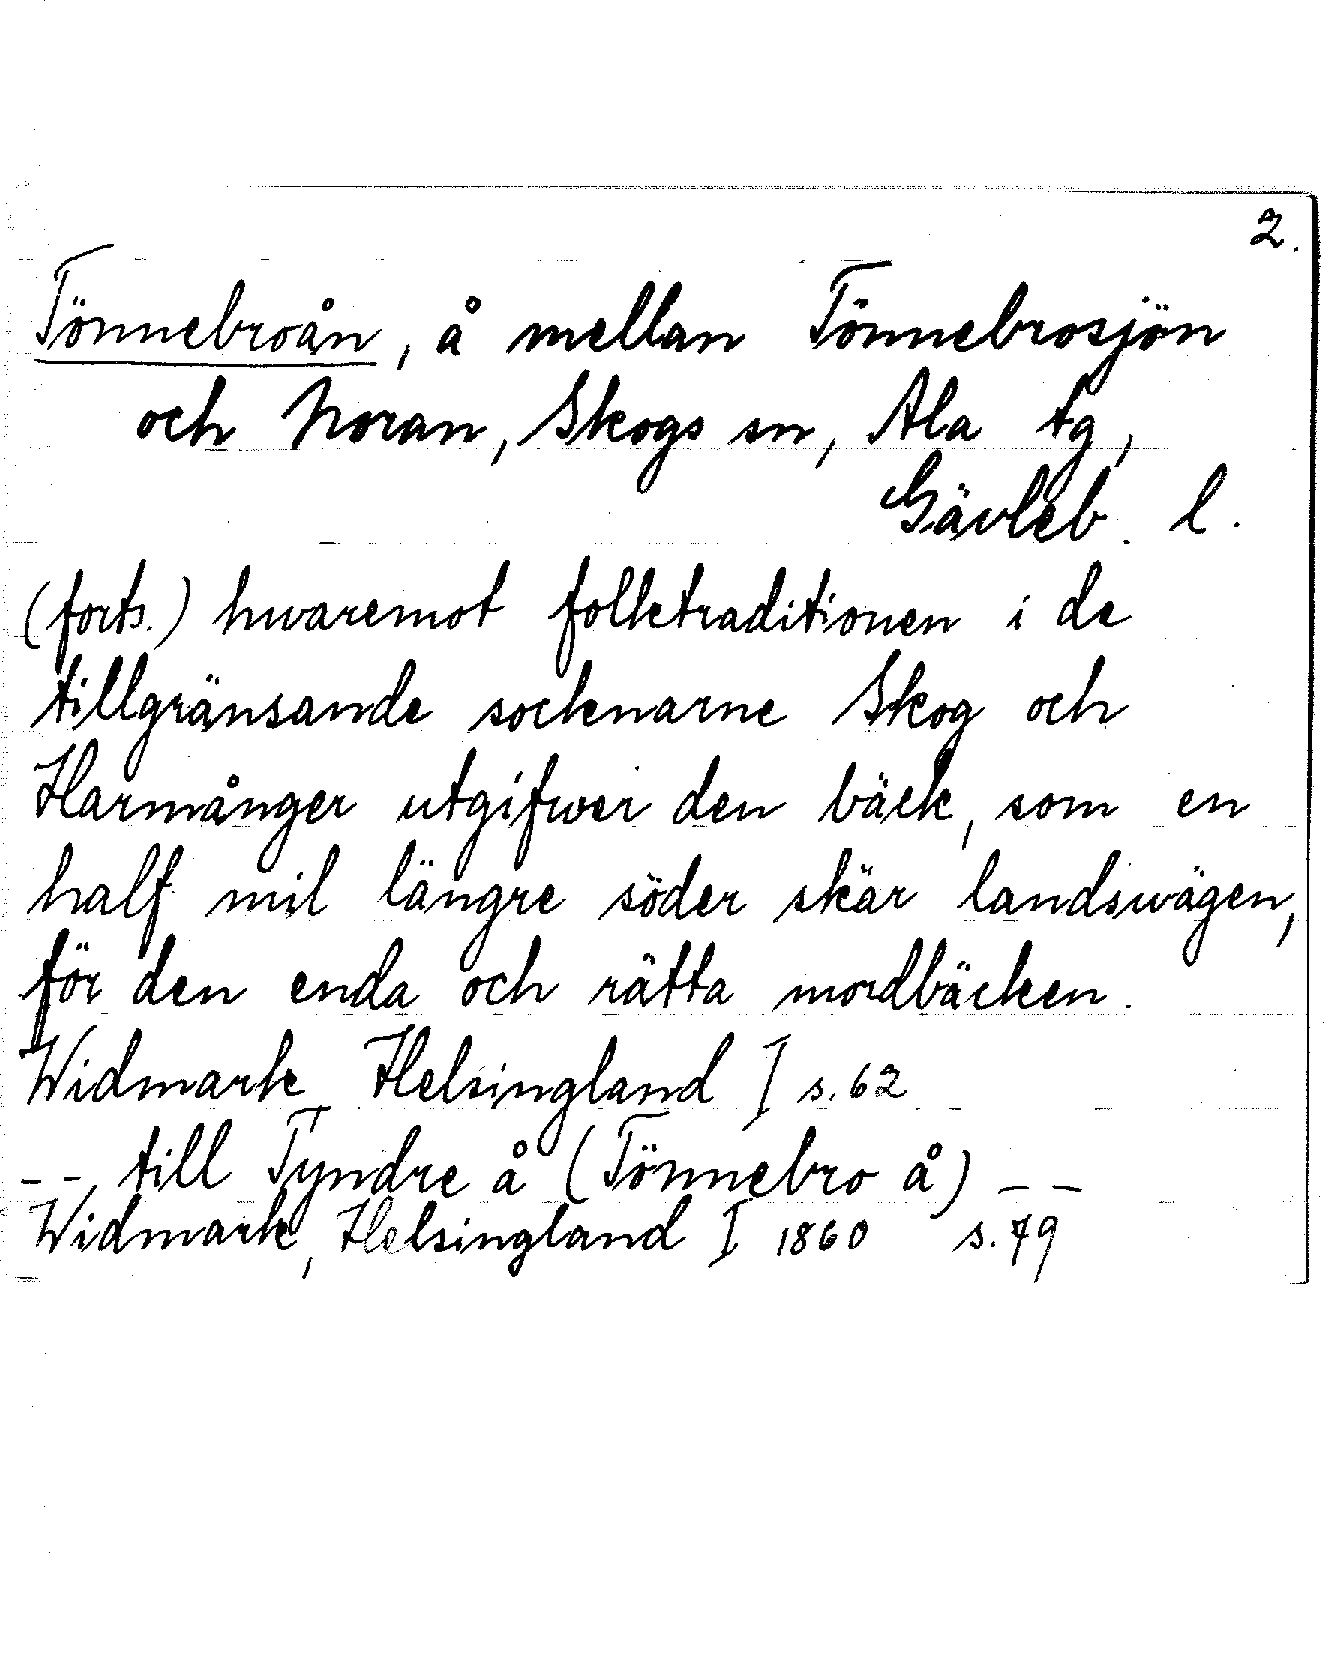 2.
Tönnebroån, å mellan Tönnebrosjön
och Noran, Skogs sn, Ala tg,
Gävleb. l.
(forts.) hwaremot folktraditionen i de
tillgränsande socknarne Skog och
Harmånger utgifwer den bäck, som en
half mil längre söder skär landswägen,
för den enda och rätta mordbäcken.
Widmark Helsingland I s. 62
-- till Tyndre å (Tönnebro å) --
Widmark, Helsingland I 1860 s. 79